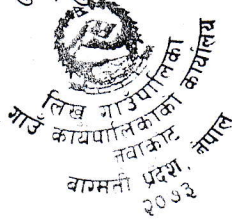 लिखु गाउँपालिका
गाउँ कार्यपालिकाको कार्यालय
नुवाकोट
बागमती प्रदेश, नेपाल
२०७३